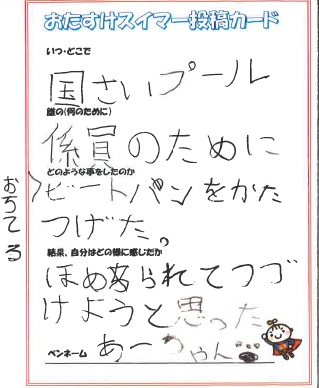 おたすけスイマー投稿カード
いつ・どこで
国さいプール
誰の(何のために)
係員のために
どのような事をしたのか
おちてる
ビートバンをかた
つけた。
結果、自分はどの様に感じたか
ほめられてつづ
けようと思った
ペンネーム
あーちゃん…